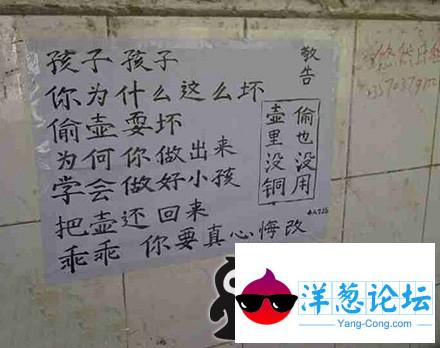 孩子 孩子
你为什么这么坏
偷壶耍坏
为何你做出来
学会做好小孩
把壶还回来
乖乖 你要真心悔改
敬告
偷也没用
壶里没铜
洋葱论坛
Yang-Cong.com